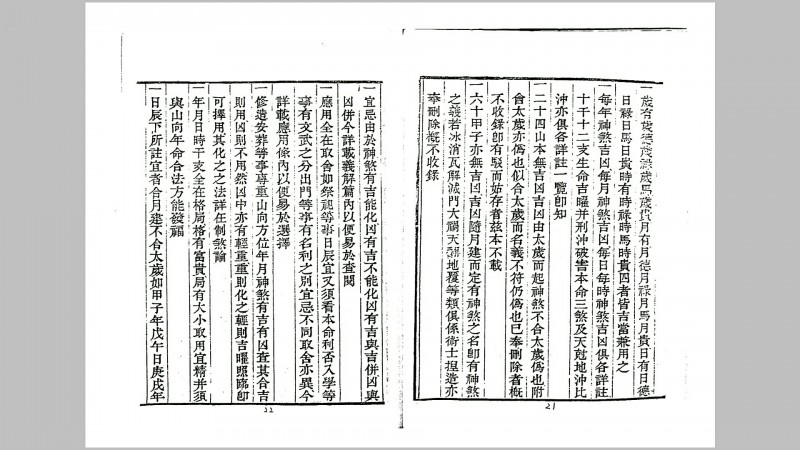 一歲有歲德歲祿歲馬歲貴月有月德月祿月馬月貴日有日德
日祿日馬日貴時有時祿時馬時貴四者皆吉當兼用之
一每年神煞吉凶每月神煞吉凶每日每時神煞吉凶俱各詳註
十干十二支生命吉曜并刑沖破害本命三煞及天尅地沖比
沖亦俱各詳註一覽卽知
一二十四山本無吉凶吉凶由太歲而起神煞不合太歲僞也附
會太歲亦僞也似合太歲而名義不符仍僞也已奉刪除者槪
不收錄卽有駁而姑存者茲本不載
一六十甲子亦無吉凶吉凶隨月建而定有神煞之名卽有神煞
之義若冰消瓦解滅門大禍天翻地覆等類俱係術士捏造亦
奉刪除槪不收錄
21
一宜忌由於神煞有吉能化凶有吉不能化凶有吉與吉併凶與
凶併今詳載義解篇內以便易於查閱
一應用全在取舍如祭祀等事日辰宜又須看本命利否入學等
事有文武之分出門等事有名利之別宜忌不同取舍亦異今
詳載應用條內以便易於選擇
一修造安葬等事專重山向方位年月神煞有吉有凶查其合吉
則用凶則不用然凶中亦有輕重重則化之輕則吉曜照臨卽
可擇用其化之之法詳在制煞論
一年月日時干支全在格局格有富貴局有大小取用宜精并須
與山向年命合法方能發福
一日辰下所註宜者合月建不合太歲如甲子年戊午日庚戌年
22